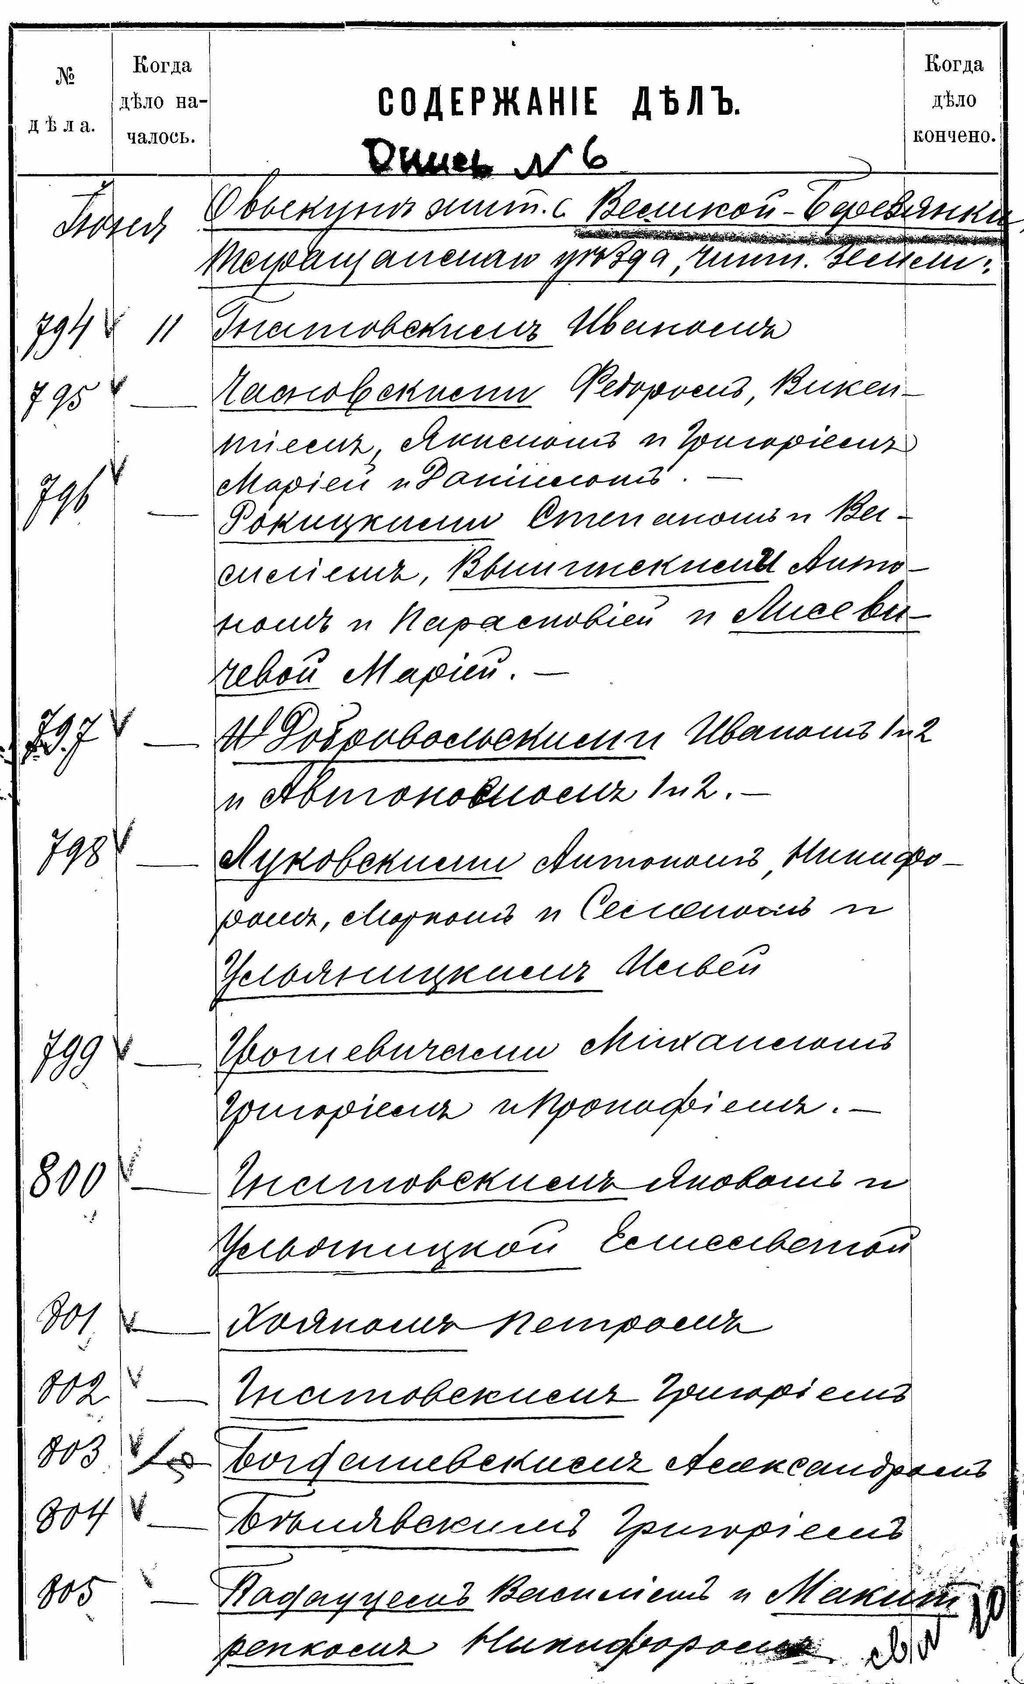 № дѣла.
Когда дѣло началось.
СОДЕРЖАНІЕ ДѢЛЪ.
Когда дѣло кончено.
Опись N 6
Іюня
О выкупѣ жит. с. Великой-Березянки,
Таращанскаго уѣзда, чинш. земли:
794 11 Гнатовскимъ Иваномъ
795 — Чановскими Федоромъ, Викен-
тіемъ, Якимомъ и Григоріемъ
Маріей и Даниломъ. —
796 — Рокицкими Степаномъ и Ва-
силіемъ, Антo-
номъ и Парасковіей и Лисеви-
чевой Маріей. —
797 — Добровольскими Иваномъ 1 и 2
и Автономомъ 1 и 2. —
798 — Луковскими Антономъ, Никифо-
ромъ, Маркомъ и Семеномъ и
Ульяницкимъ
799 — Михаиломъ
Григоріемъ и Прокофіемъ. —
800 — Гнатовскимъ Яковомъ и
Ульяницкой Елисаветой
801 — Хояномъ Петромъ
802 — Гнатовскимъ Григоріемъ
803 Богдашевскимъ Александромъ
804 — Бѣлявскимъ Григоріемъ
805 — Василіемъ и Макит
ренкомъ Никифоромъ
св N 20